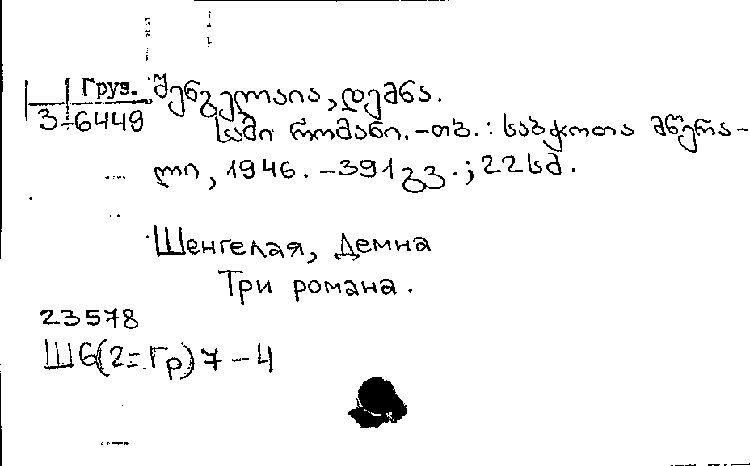 Груз. შენგელაია, დემნა.
3-6449 სამი რომანი. - თბ. : საბჭოთა მწერა-
ლი, 1946. - 391 გვ. ; 22 სმ.
Шенгелая, Демна
Три романа.
23578
Ш6(2=Гр)7-4